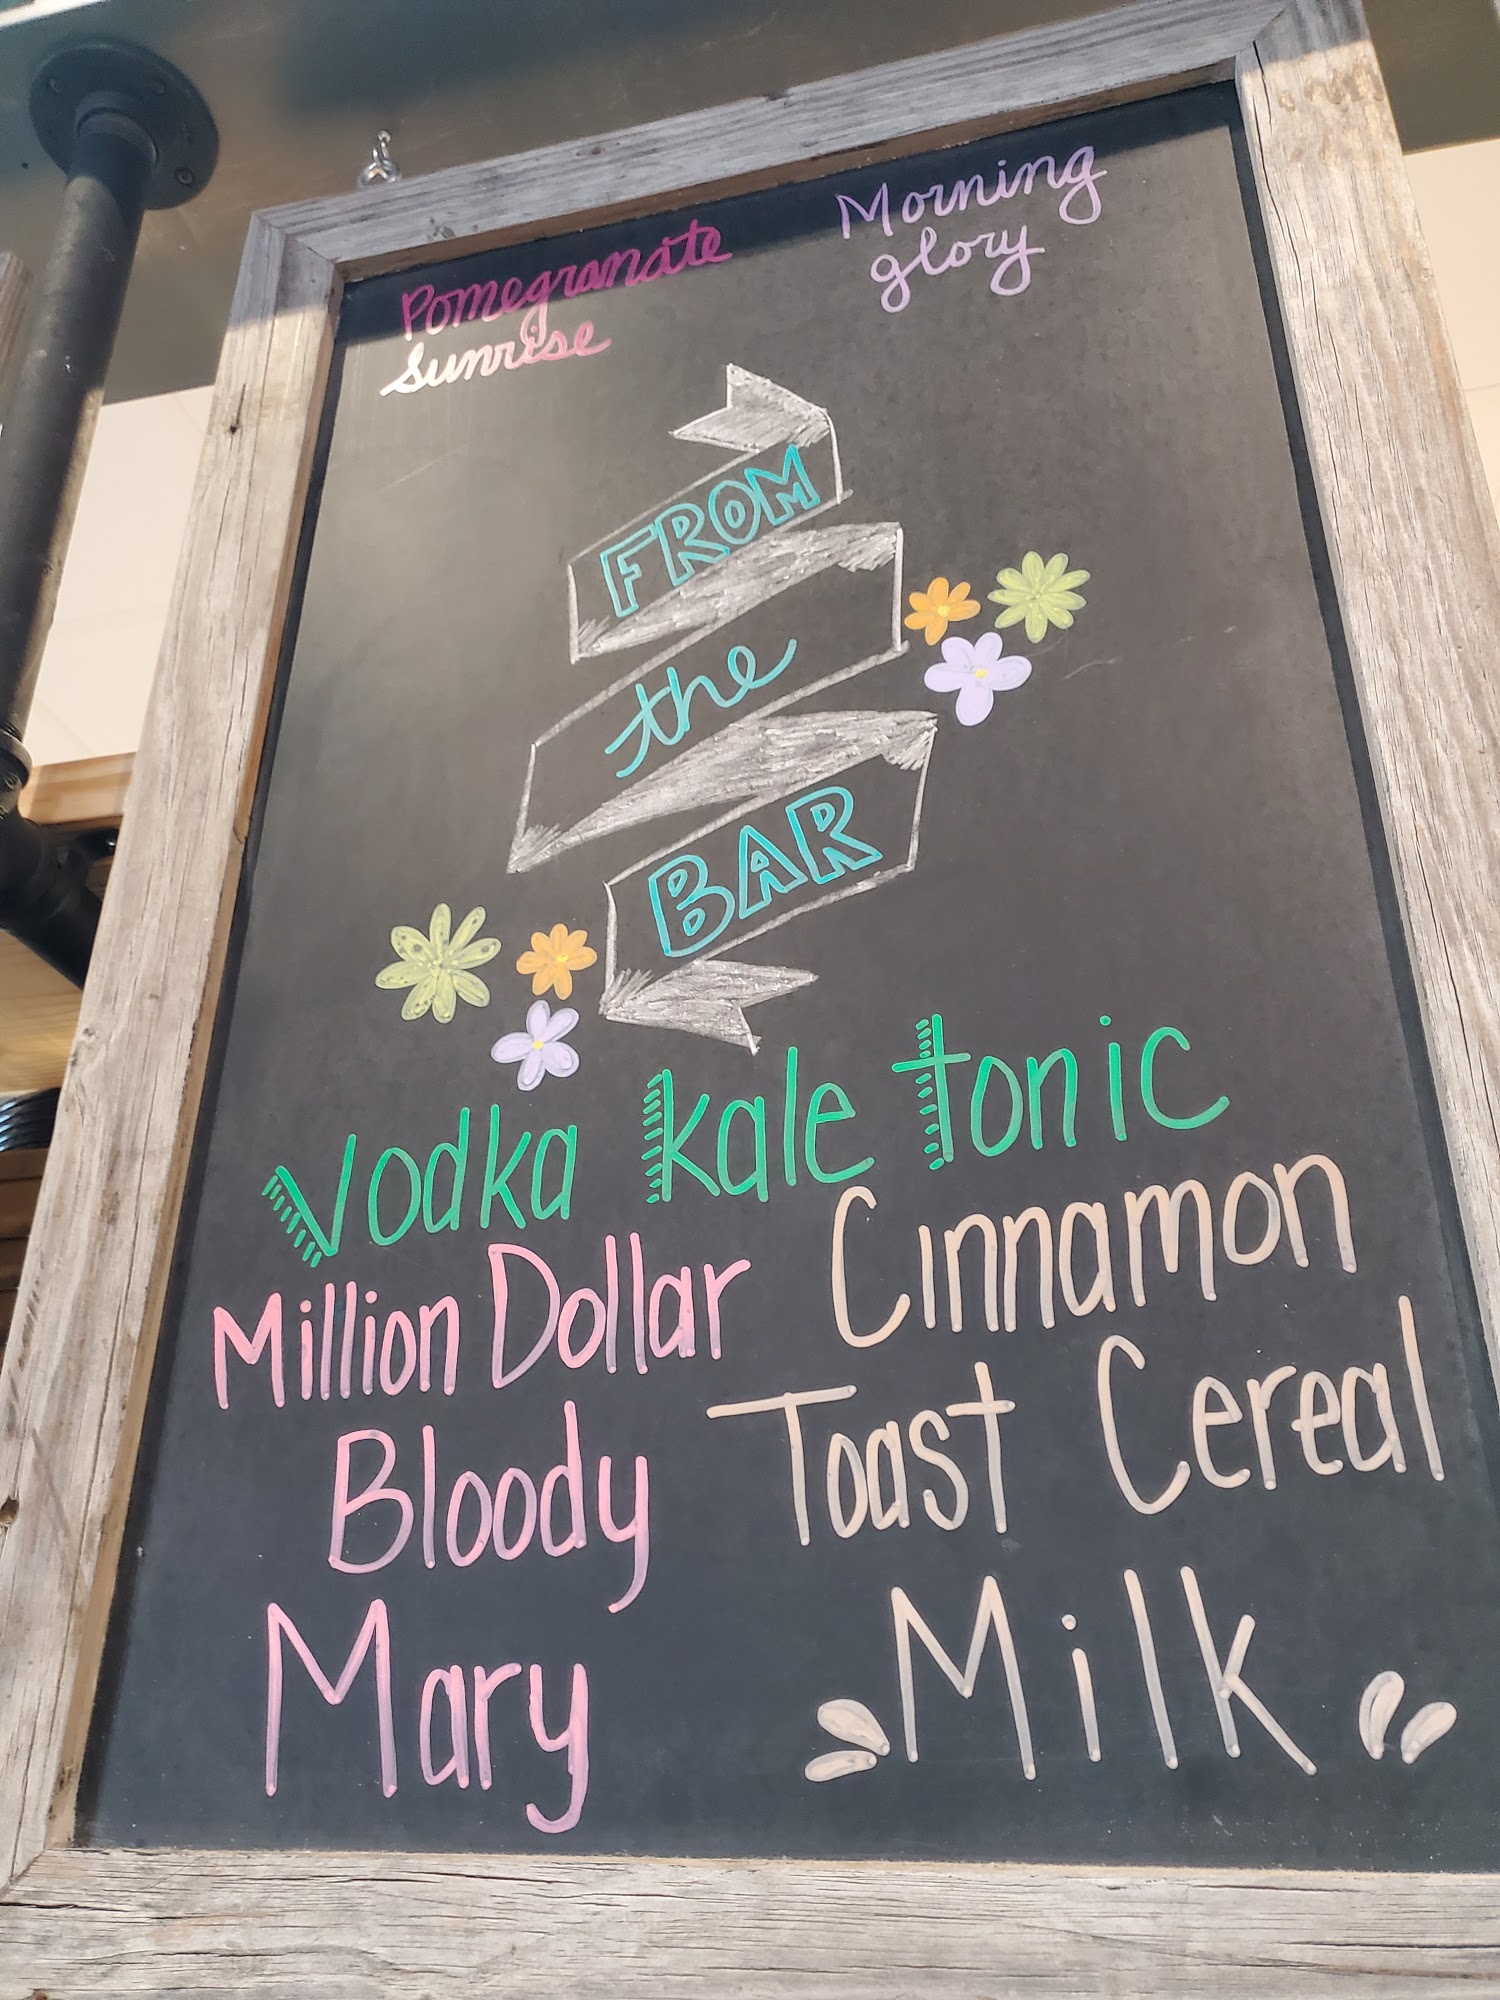 Pomegranate
Sunrise
Morning
glory
FROM
the
BAR
Vodka kale tonic
Million Dollar
Bloody
Mary
Cinnamon
Toast Cereal
Milk